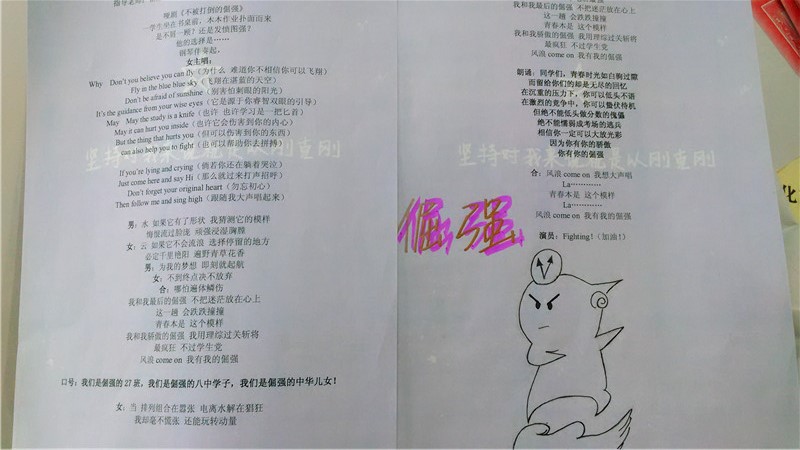 指导老师：
舞剧《不被打倒的倔强》
一学生坐在书桌前，木木作业扑面而来
是不屑一顾？还是发愤图强？
他的选择是……
钢琴伴奏起，
女主唱：
Why Don't you believe you can fly（为什么 难道你不相信你可以飞翔）
Fly in the blue blue sky（飞翔在湛蓝的天空）
Don't be afraid of sunshine（别害怕刺眼的阳光）
It's the guidance from your wise eyes（它是源于你睿智双眼的引导）
May May the study is a knife（也许 也许学习是一把匕首）
May it can hurt you inside（也许它会伤害到你的内心）
But the thing that hurts you（但可以伤害到你的东西）
can also help you to fight（也可以帮助你去拼搏）
If you're lying and crying（倘若你还在躺着哭泣）
Just come here and say Hi（那么就过来打声招呼）
Don't forget your original heart（勿忘初心）
Then follow me and sing high（跟随我大声唱起来）
男：水 如果它有了形状 我猜测它的模样
悔恨流过脸庞 顽强浸湿胸膛
女：云 如果它不会流浪 选择停留的地方
必定千里艳阳 遍野青草花香
男：为我的梦想 即刻就起航
女：不到终点决不放弃
合：哪怕遍体鳞伤
我和我最后的倔强 不把迷茫放在心上
这一趟 会跌跌撞撞
青春本是 这个模样
我和我骄傲的倔强 我用理综过关斩将
最疯狂 不过学生党
风浪 come on 我有我的倔强
口号：我们是倔强的 27 班，我们是倔强的八中学子，我们是倔强的中华儿女！
女：当 排列组合在嚣张 电离水解在猖狂
我却毫不慌张 还能玩转动量
我和我最后的倔强 不把迷茫放在心上
这一趟 会跌跌撞撞
青春本是 这个模样
我和我骄傲的倔强 我用理综过关斩将
最疯狂 不过学生党
风浪 come on 我有我的倔强
朗诵：同学们，青春时光如白驹过隙
而留给你们的却是无尽的回忆
在沉重的压力下，你可以低头不语
在激烈的竞争中，你可以蛰伏待机
但绝不能低头做分数的傀儡
绝不能懦弱成考场的逃兵
相信你一定可以大放光彩
因为你有你的骄傲
你有你的倔强
合：风浪 come on 我想大声唱
La…………
青春本是 这个模样
La…………
风浪 come on 我有我的倔强
演员：Fighting!（加油！）
倔强
化